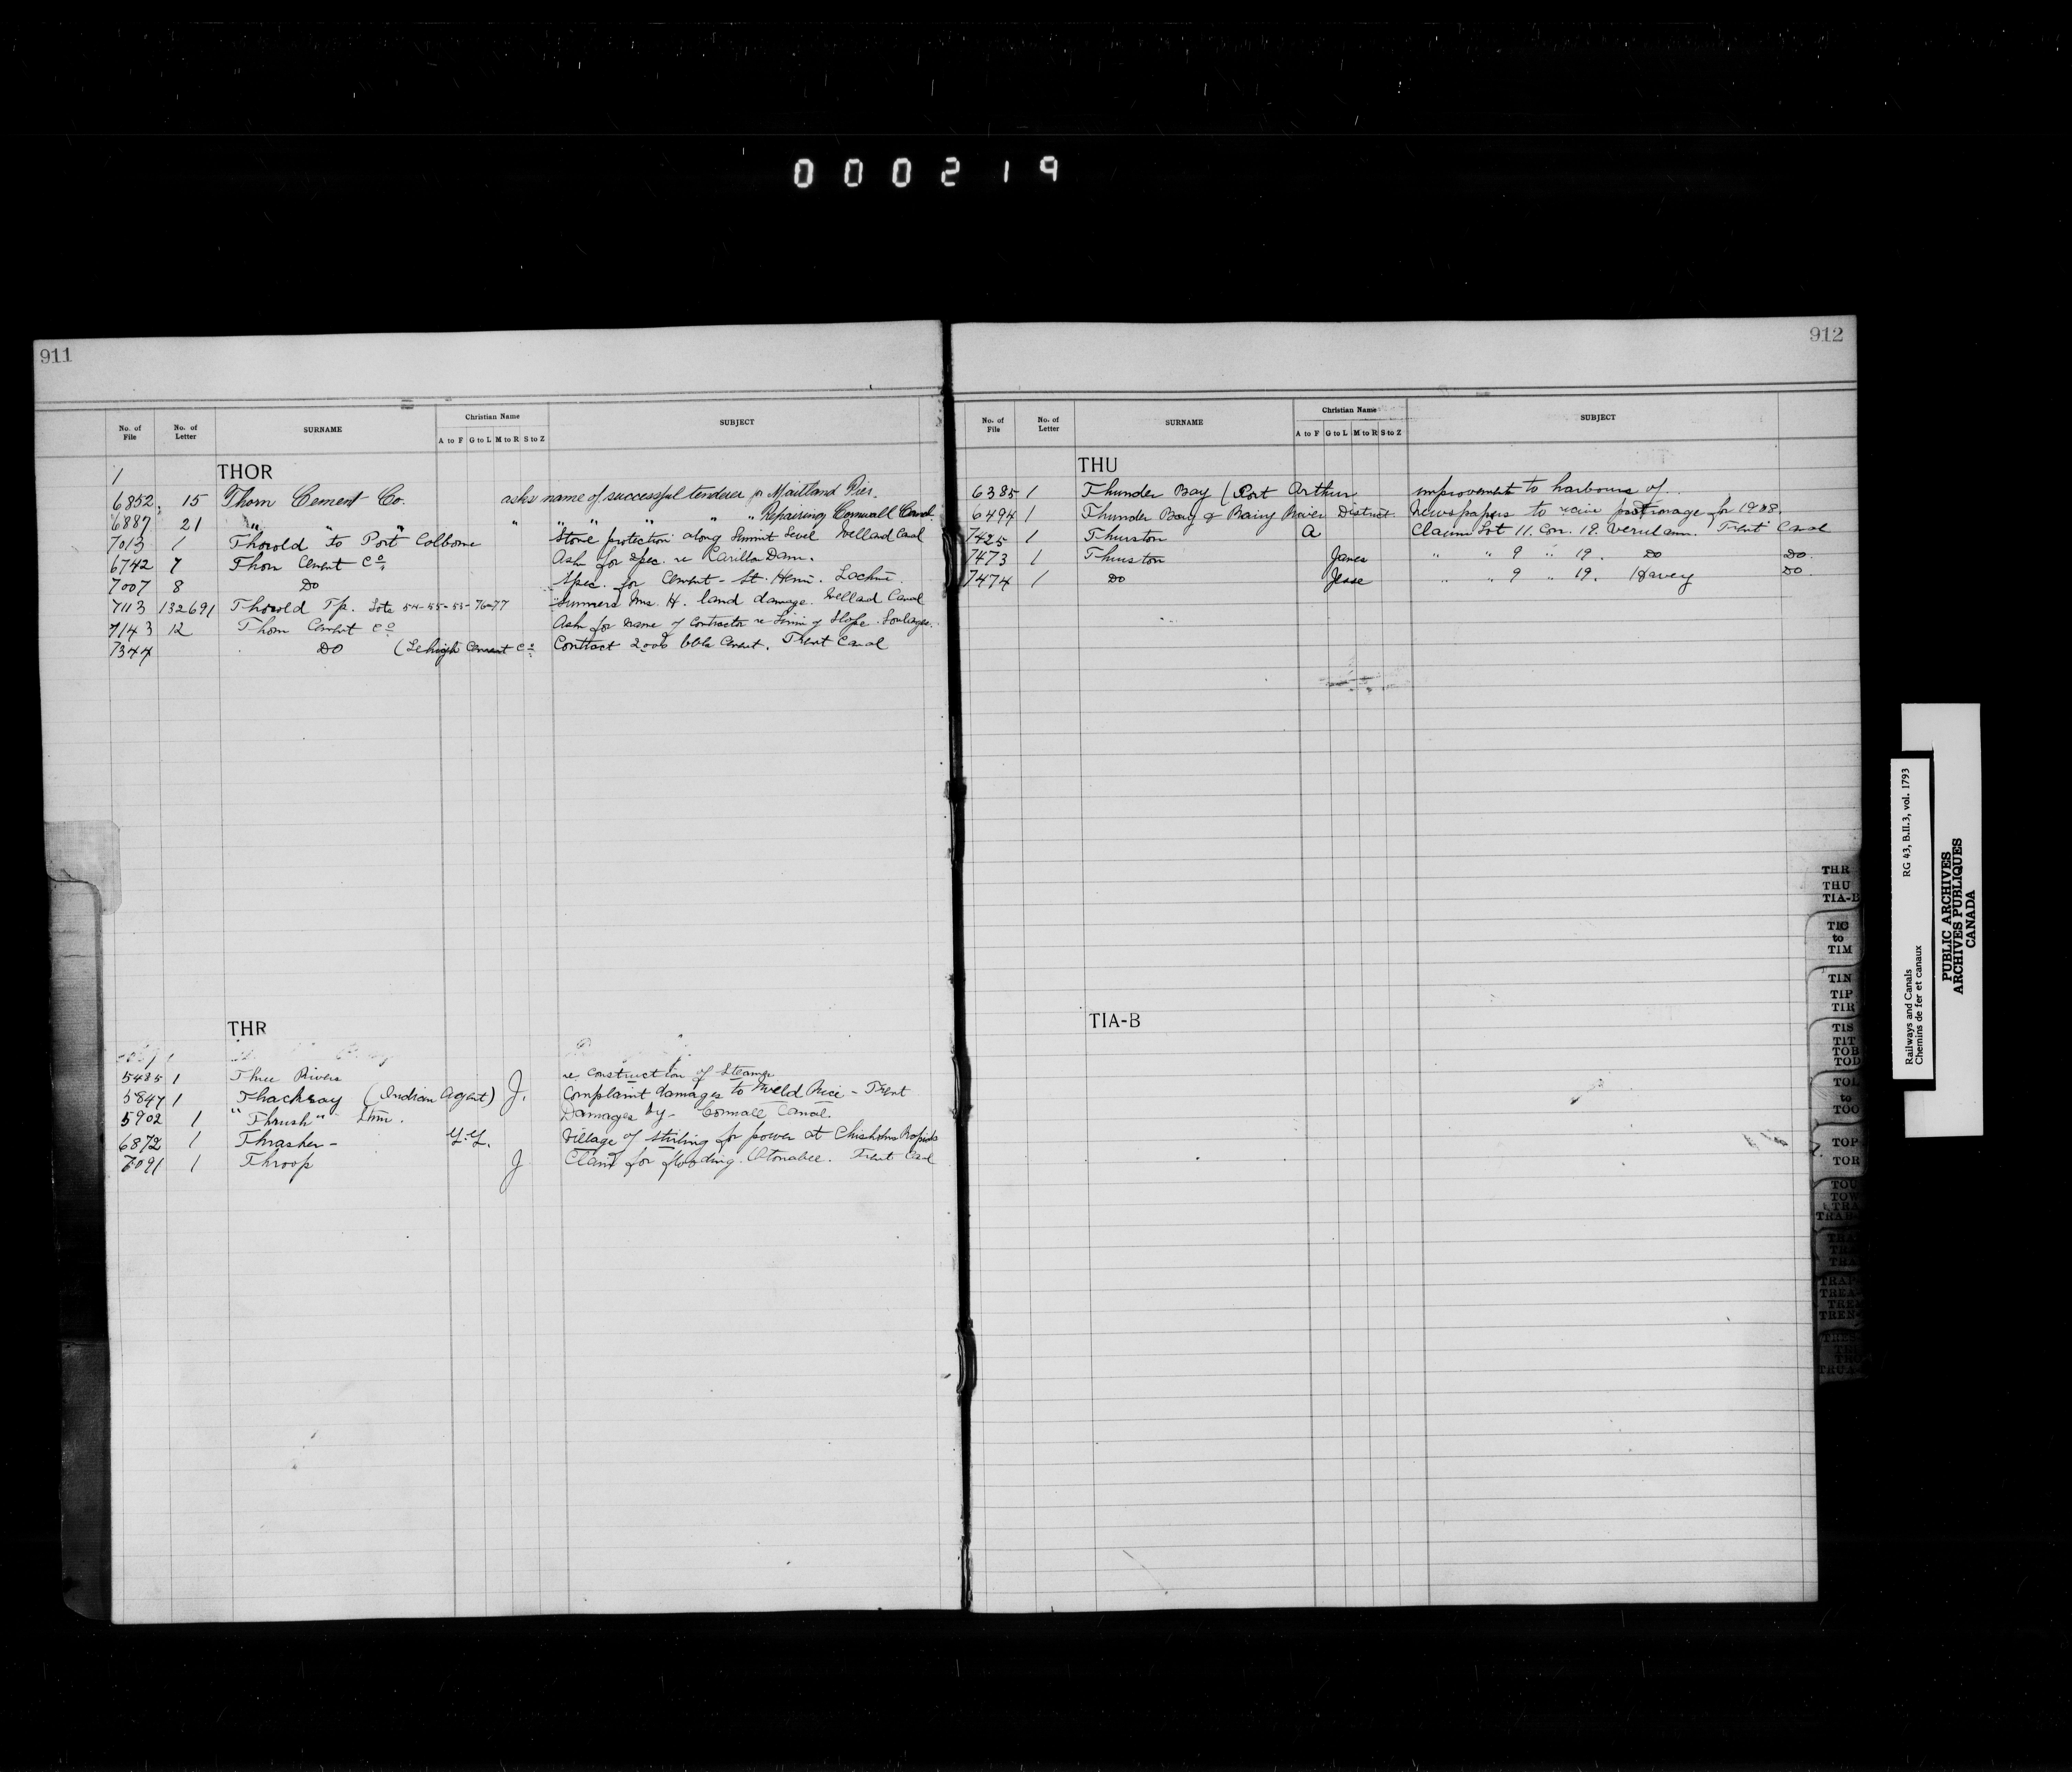 000219
911
No. of File No. of Letter SURNAME Christian Name A to F G to L M to R S to Z SUBJECT
1 THOR
6852. 15 Thorn Cement Co. asks name of successful tenderer for Maitland Pier.
6887 21 " " " " " " " " " Repairing Cornwall Canal.
7013 1 Thorold to Port Colborne Stone protection along Summit Level Welland Canal
6742 7 Thorn Cement Co. Ask for spec. re Carillon Dam.
7007 8 Do Spec. for Cement - St. Henri. Lachine.
7113 132691 Thorold Tp. Lots 54-55-53-76-77 Summers Mrs. H. land damage. Welland Canal
7143 12 Thorn Cement Co Ask for name of contractor re Lining of Slope. Soulanges.
7344 Do (Lehigh Cement Co Contract 2000 bbls Cement. Trent Canal
THR
5485 1 Three Rivers re construction of Steamer
5847 1 Thackray (Indian Agent) J. Complaint damages to Rice - Trent
5902 1 "Thrush" Stmr. Damages by - Cornwall Canal.
6872 1 Thrasher - Village of Stirling for power at Chisholms Rapids
7091 1 Throop J Claim for flooding. Otonabee. Trent Canal
912
No. of File No. of Letter SURNAME Christian Name A to F G to L M to R S to Z SUBJECT
THU
6385 1 Thunder Bay (Port Arthur improvements to harbours of
6494 1 Thunder Bay & Rainy River District Newspapers to receive patronage for 1908.
7425 1 Thurston A Claim Lot 11. Con. 19. Verulam. Trent Canal
7473 1 Thurston James " " 9 " 19. Do Do.
7474 1 Do Jesse " " 9 " 19. Harvey Do.
TIA-B
THR
THU
TIA-B
TIC
to
TIM
TIN
TIP
TIR
TIS
TIT
TOB
TOD
TOL
to
TOO
TOP
TOR
TOU
TOW
TRA
Railways and Canals RG 43, B.II.3, vol. 1793
Chemins de fer et canaux
PUBLIC ARCHIVES
ARCHIVES PUBLIQUES
CANADA